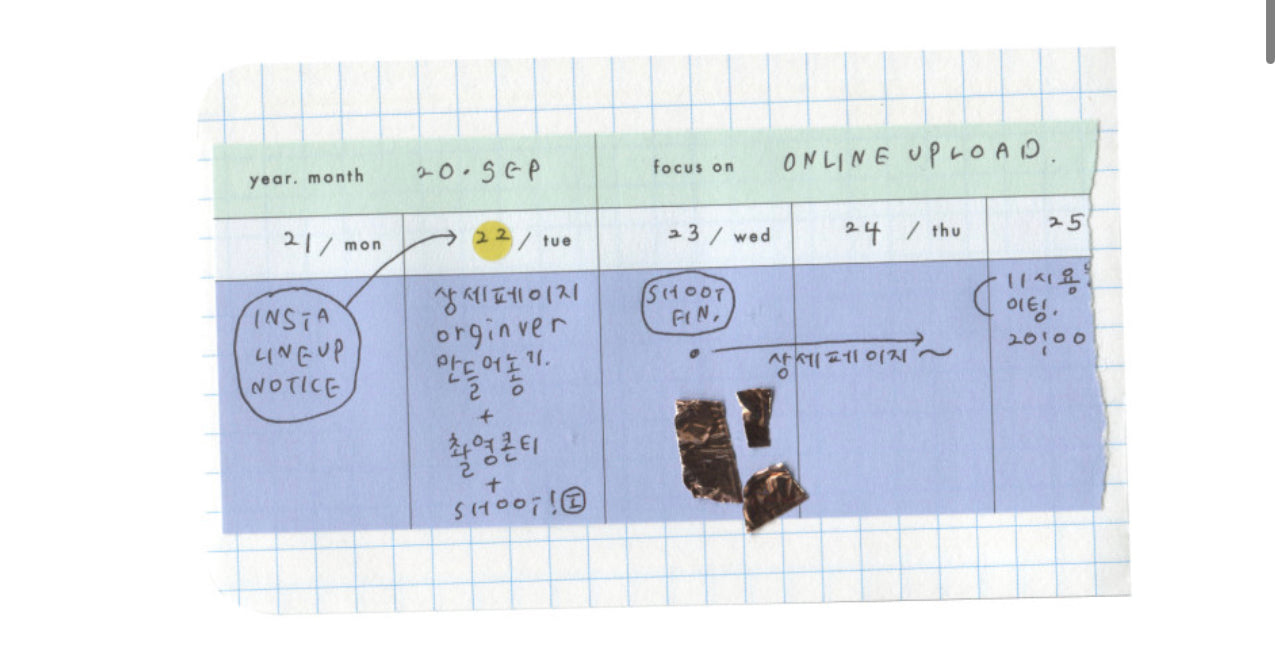 year. month 20. SEP focus on ONLINE UPLOAD.
21 / mon 22 / tue 23 / wed 24 / thu 25
INSTA
LINEUP
NOTICE
상세페이지
orginver
만들어놓기.
+
촬영콘티
+
SHOOT! I
SHOOT
FIN.
상세페이지 ~
11시
미팅.
20:00